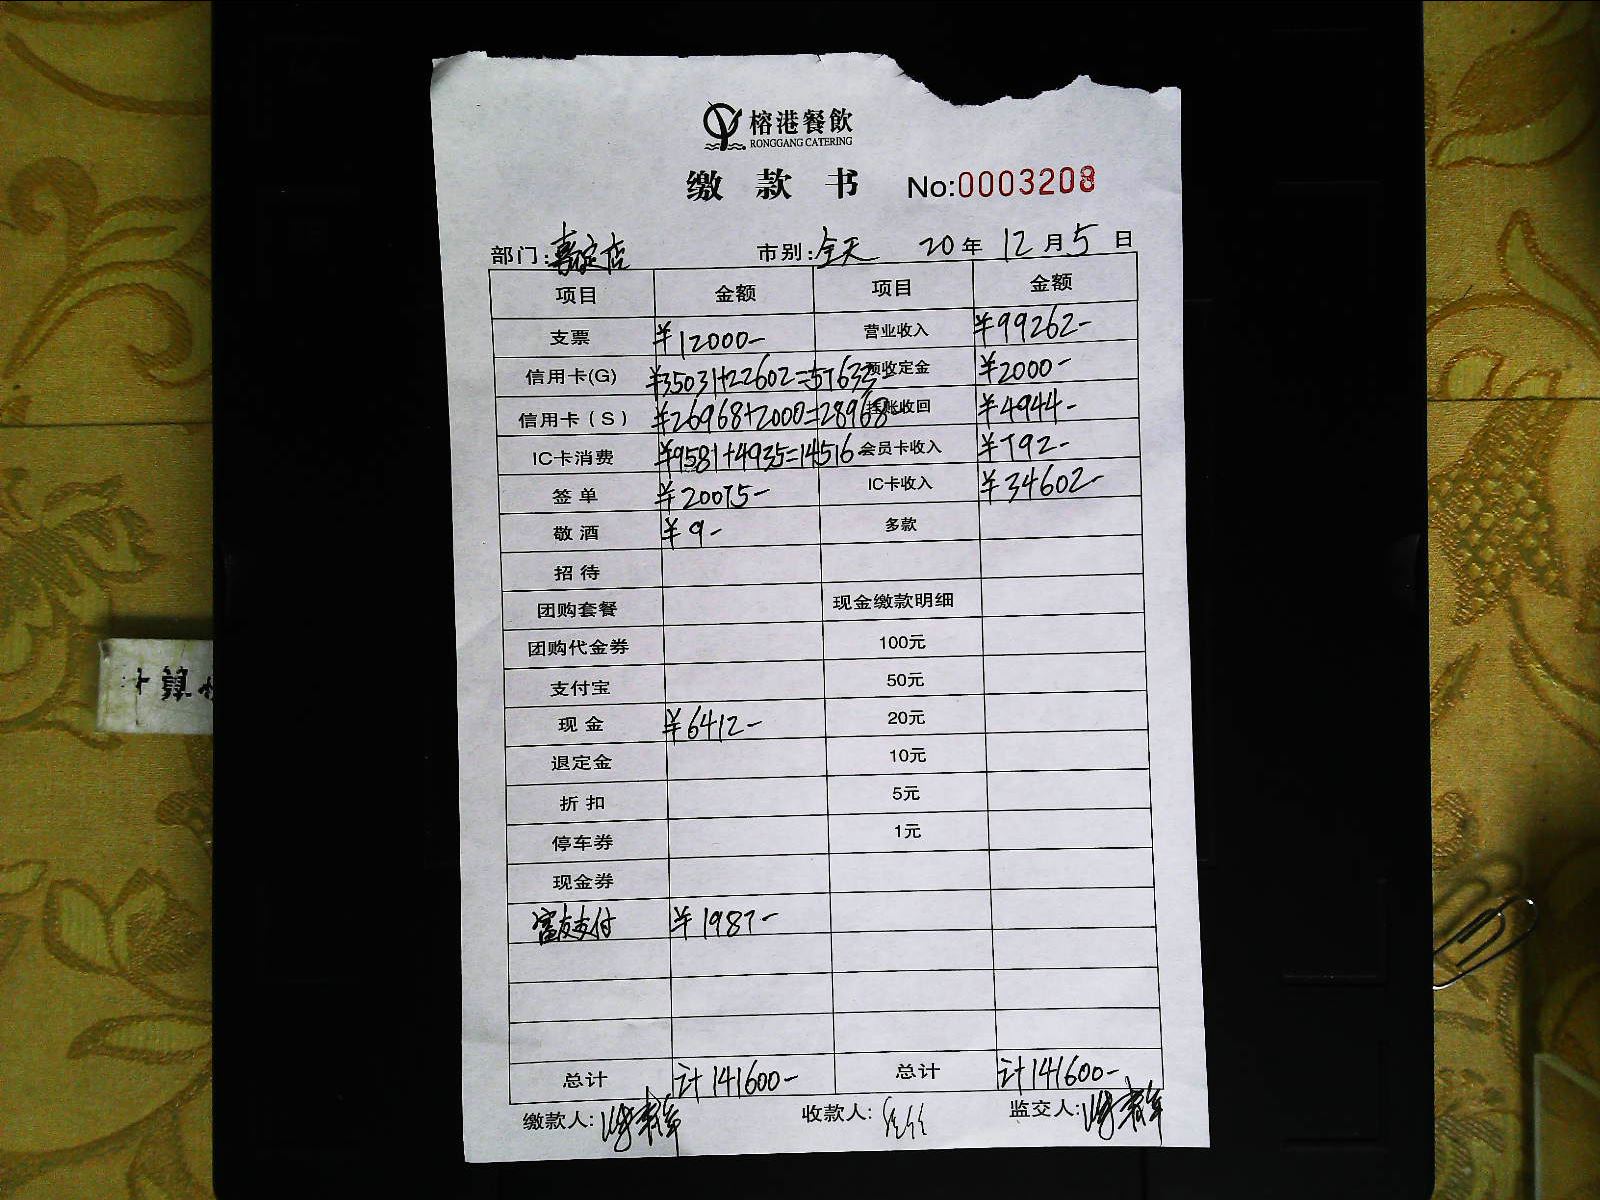 榕港餐飲
RONGGANG CATERING
缴款书 No:0003208
部门:嘉定店 市别:全天 20年12月5日
项目 金额 项目 金额
支票 ¥12000- 营业收入 ¥99262-
信用卡(G) ¥35031+22602=57633- 预收定金 ¥2000-
信用卡(S) ¥26968+2000=28968- 挂账收回 ¥4944-
IC卡消费 ¥9581+4935=14516 会员卡收入 ¥792-
签单 ¥20075- IC卡收入 ¥34602-
敬酒 ¥9- 多款
招待
团购套餐 现金缴款明细
团购代金券 100元
支付宝 50元
现金 ¥6412- 20元
退定金 10元
折扣 5元
停车券 1元
现金券
富友支付 ¥1987-
总计 计141600- 总计 计141600-
缴款人: 收款人: 监交人:
计算